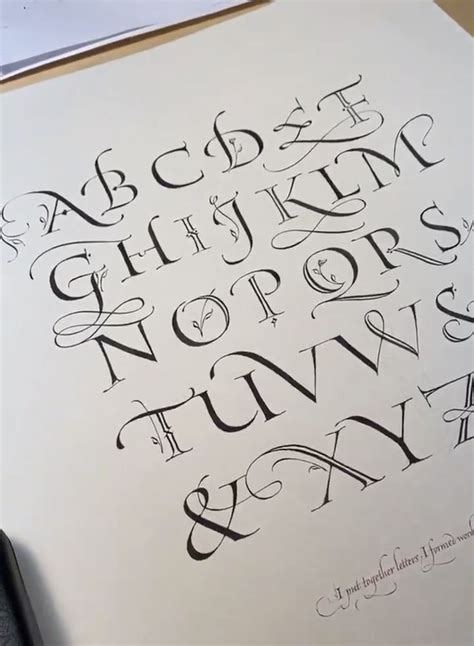 ABCDEF
GHIJKLM
NOPQRS
TUVW
&XYZ
I put together letters, I formed